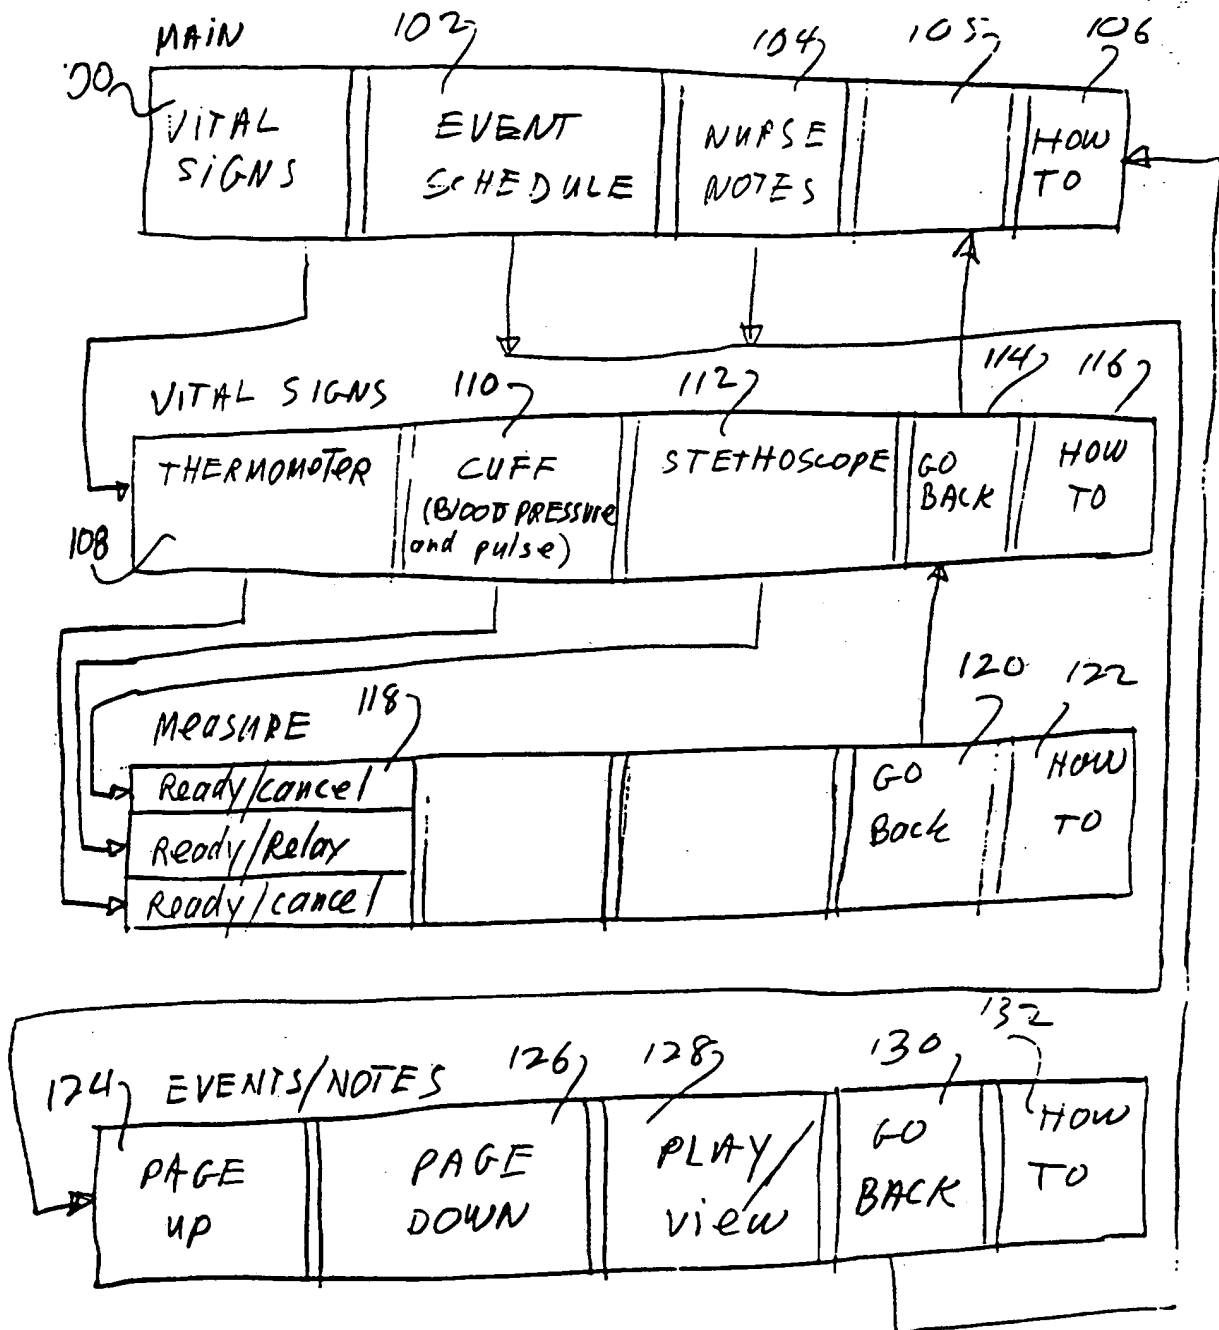 MAIN 102 104 105 106
00
VITAL SIGNS
EVENT SCHEDULE
NURSE NOTES
HOW TO
VITAL SIGNS 110 112 114 116
THERMOMOTER
CUFF
(BlOOD PRESSURE
and pulse)
STETHOSCOPE
GO BACK
HOW TO
108
MeasuRE 118 120 122
Ready/cancel
Ready/Relax
Ready/cancel
GO Back
HOW TO
124 EVENTS/NOTES 126 128 130 132
PAGE UP
PAGE DOWN
PLAY/ view
GO BACK
HOW TO